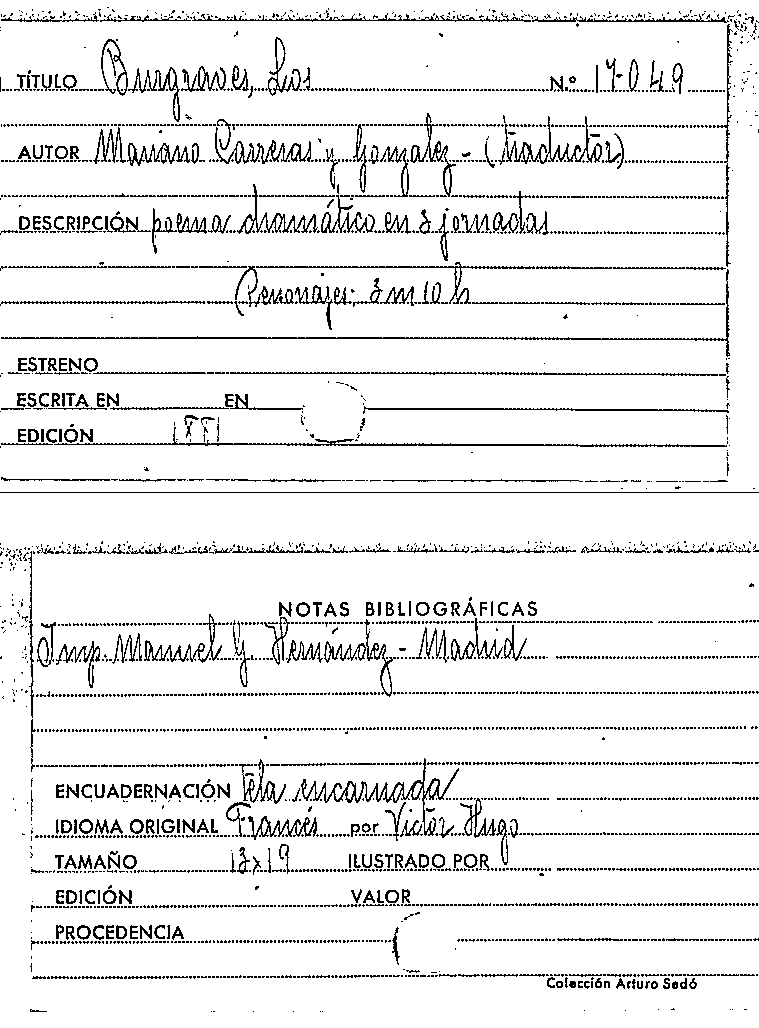 TÍTULO Burgraves, Los N.º 17-049
AUTOR Mariano Carreras y Gonzalez - (traductor)
DESCRIPCIÓN poema dramático en 3 jornadas
Personajes: 3 m 10 h
ESTRENO
ESCRITA EN EN
EDICIÓN 1881
NOTAS BIBLIOGRÁFICAS
Imp. Manuel G. Hernández - Madrid
ENCUADERNACIÓN tela encarnada
IDIOMA ORIGINAL Francés por Victor Hugo
TAMAÑO 13x19 ILUSTRADO POR
EDICIÓN VALOR
PROCEDENCIA
Colección Arturo Sedó